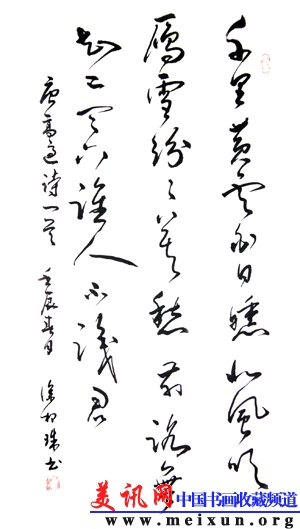 千里黄云白日曛北风吹
雁雪紛々莫愁前路無
知己天下誰人不識君
唐高適詩一首 壬辰春月 徐珠书
美讯网 中国书画收藏频道
www.meixun.org